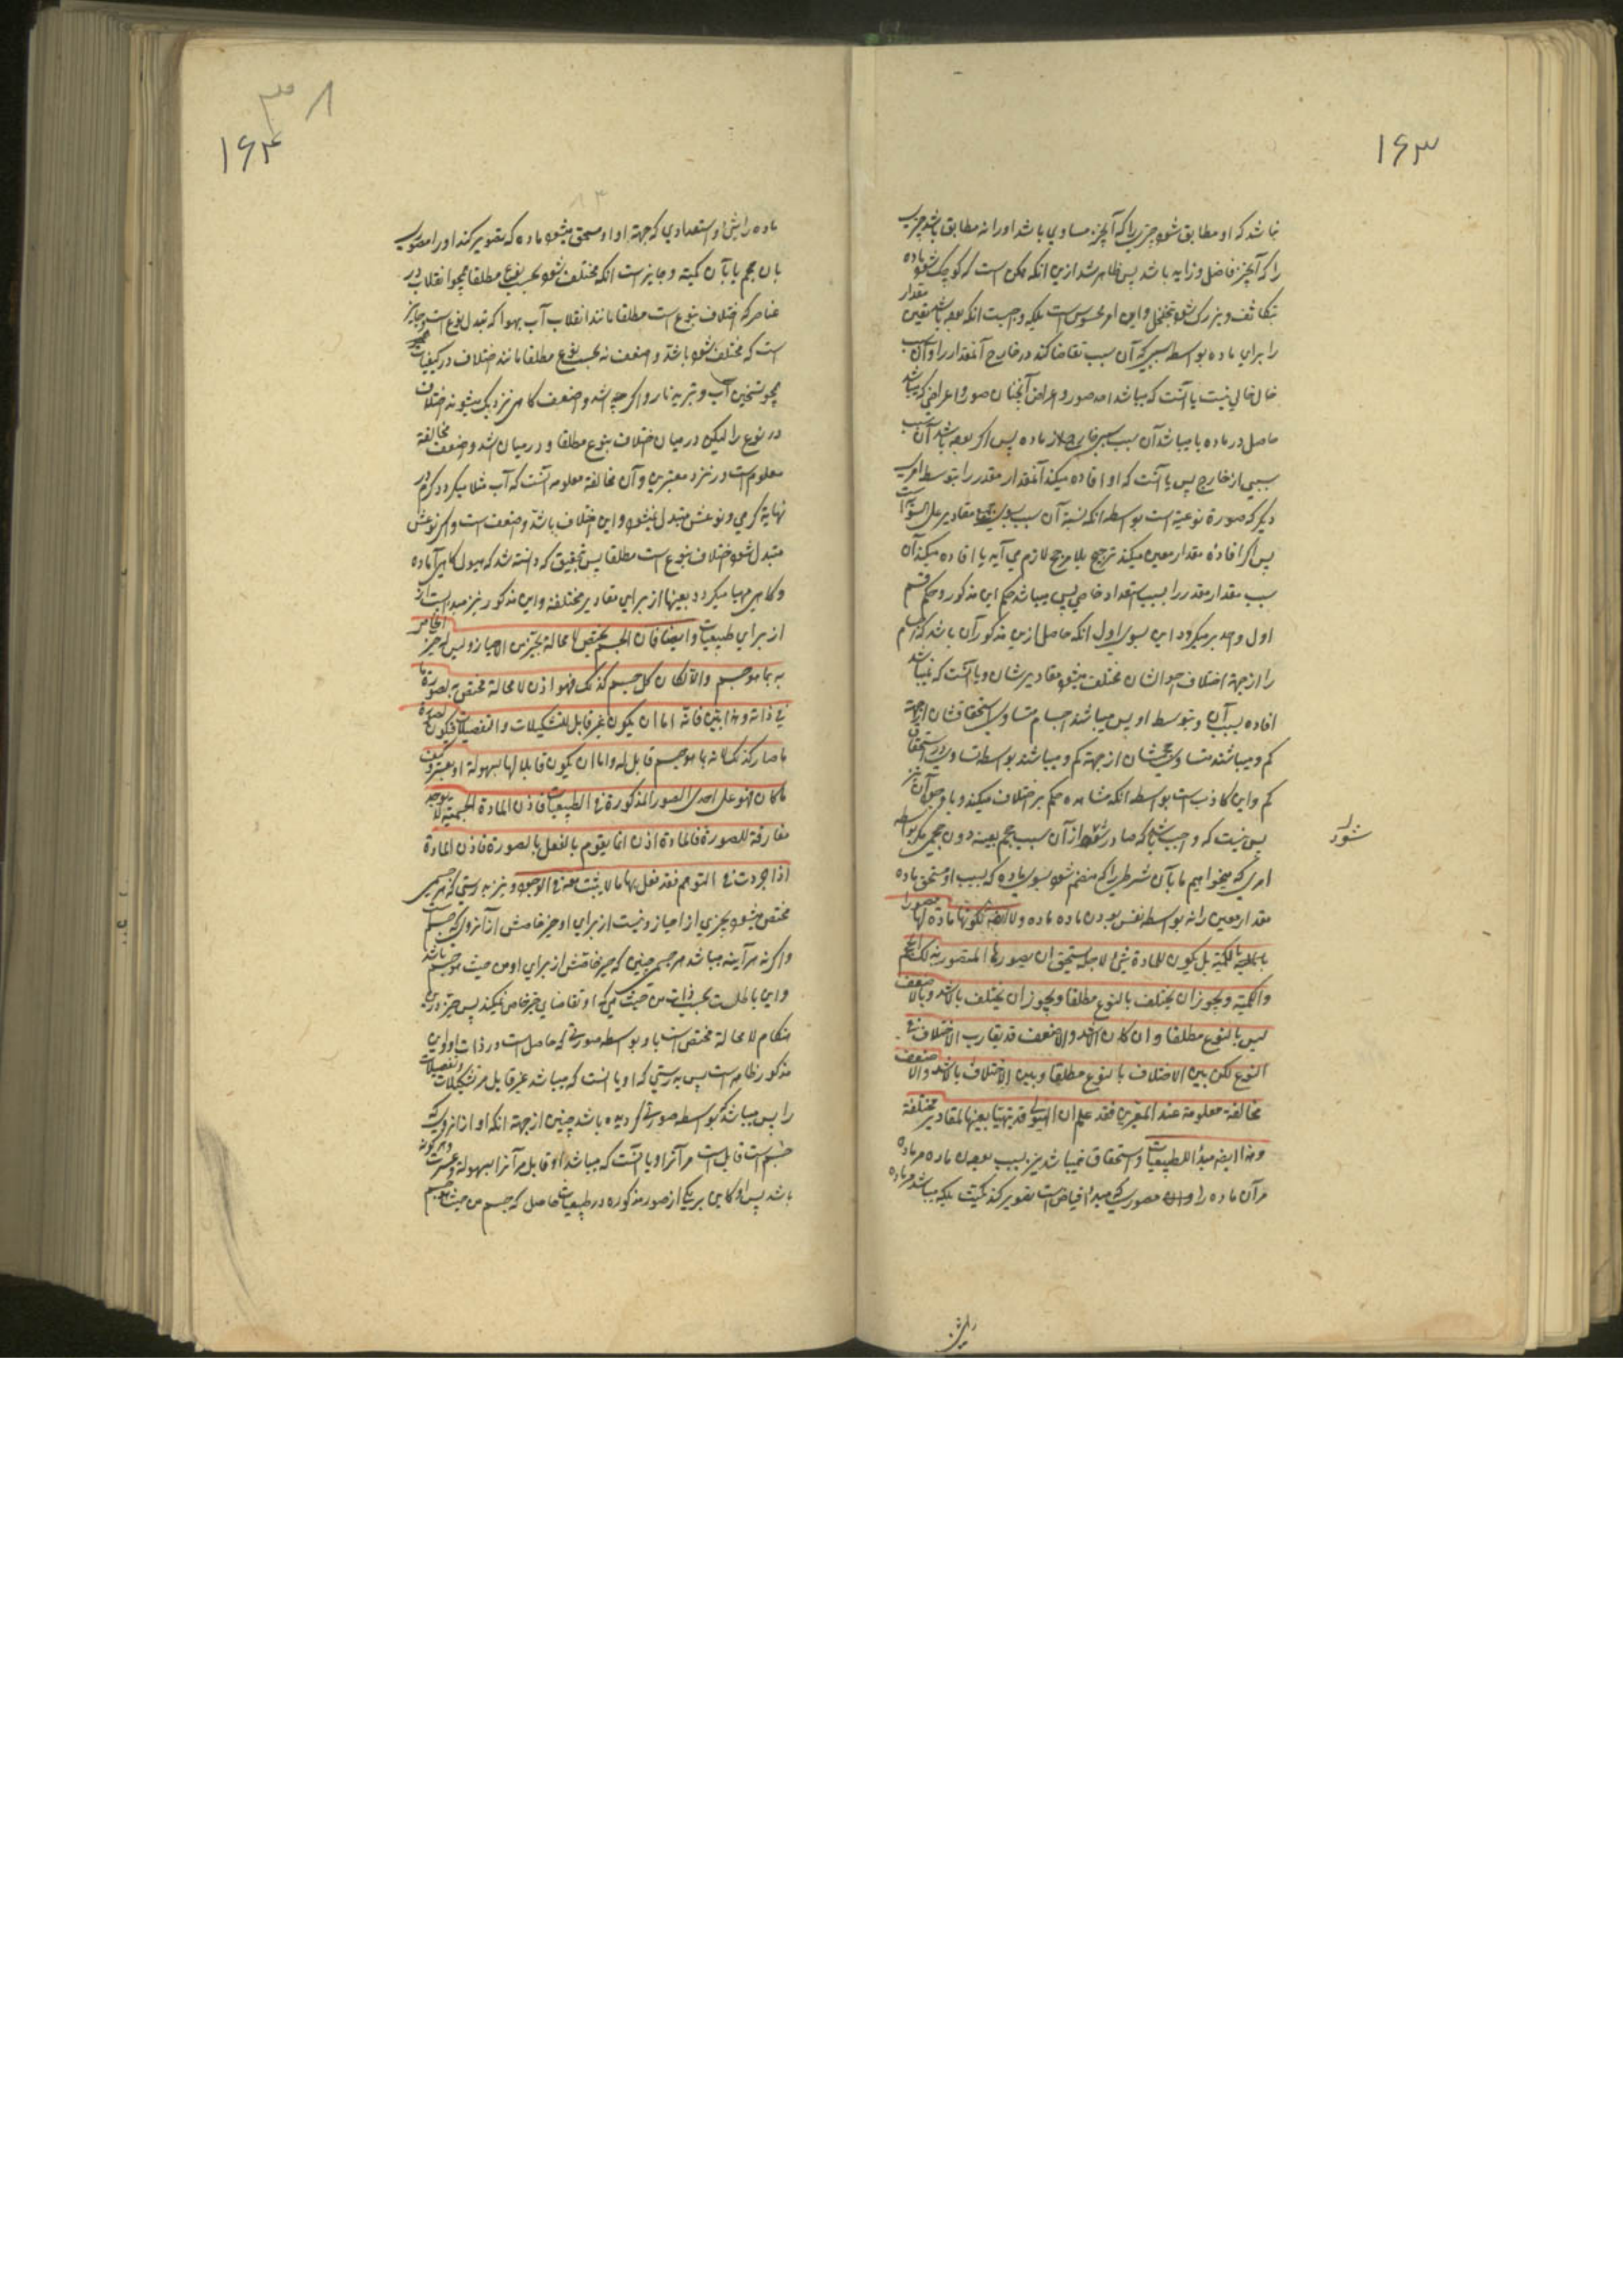 ۱۶۳
نباشد که او مطابق شود چیزیرا که آنچیز مساوی باشد او را نه مطابق باشد چیزی
را که آنچیز فاضل و زاید باشد پس ظاهر شد ازین انکه ممکن است که کوچک شود ماده
بتکاثف و بزرک شود بتخلخل و این امر محسوس است بلکه واجبست انکه بوده باشد تعین مقدار
را برای ماده بواسطه سببی که آن سبب تقاضا کند در خارج آنمقدار را و آن سبب
خالی نیست یا آنست که میباشد احد صور و اعراض آنچنان صور و اعراضی که میباشد
حاصل در ماده یا میباشد آن سبب سببی خارج از ماده پس اکر بوده باشد آن سبب
سببی از خارج پس یا آنست که او افاده میکند آنمقدار مقدر را بتوسط امری
دیکر که صورة نوعیه است بواسطه انکه نسبة آن سبب بسوی مقادیر علی السوا است
پس اکر افادهٔ مقدار معین میکند ترجیح بلا مرجح لازم می آید یا افاده میکند آن
سبب مقدار مقدر را بسبب استعداد خاصی پس میباشد حکم این مذکور و حکم قسم
اول واحد بر میکردد این بسوی اول انکه حاصل ازین مذکور آن باشد که اجسام
را از جهة اختلاف احوالشان مختلف میشود مقادیرشان و یا آنست که نمیباشد
افاده بسبب آن و بتوسط او پس میباشند اجسام متساوی استحقاقشان از جهة
کم و میباشند متساوی حجمشان از جهة کم و میباشند بواسطه تساوی در استحقاق
کم و این کاذب است بواسطه انکه مشاهده حکم بر اختلاف میکند و با وجود آن نیز
پس نیست که واجب باشد که صادر شود از آن سبب حجم بعینه دون حجمی مکر بواسطه
شود
امری که میخواهیم ما بآن شرطی را که منضم شود بسوی ماده که بسبب او مستحق ماده
مقدار معین را نه بواسطه نفس بودن ماده ماده و لا ایضا لکونها مادة لها مصورا
بالکمیة بل یکون للمادة شئ لاجله یستحق ان یصورها المتصور بذلک الحجم
والکمیة و یجوز ان یختلف بالنوع مطلقا و یجوز ان یختلف بالاشد و بالاضعف
لیس بالنوع مطلقا و ان کان الاشد و الاضعف قد یقارب الاختلاف فی
النوع لکن بین الاختلاف بالنوع مطلقا و بین الاختلاف بالاشد و الاضعف
مخالفة معلومة عند المعتبرین فقد علم ان الهیولی قد یتهیأ بعینها لمقادیر مختلفة
و هذا ایضا مبدأ للطبیعیات و استحقاق نمیباشد نیز بسبب بودن ماده مر ماده
مر آن ماده را مصوری که مبدأ فیاض است تصویر کند کمیت بلکه میباشد مر ماده
۳۸
۱۶۴
ماده را شئ و استعدادی که جهة او مستحق میشود ماده که تصویر کند او را مصوری
بان حجم یا بآن کمیة و جایز است انکه مختلف شود بحسب نوع مطلقا همچو انقلاب در
عناصر که اختلاف بنوع است مطلقا مانند انقلاب آب بهوا که تبدل نوع است و جایز
است که مختلف شود باشد و اضعف نه بحسب نوع مطلقا مانند اختلاف در کیفیات
همچو تسخین آب و تبرید نار و اکر چه اشد و اضعف کاهی نزدیک میشوند اختلاف
در نوع را لیکن در میان اختلاف بنوع مطلقا و در میان اشد و اضعف مخالفة
معلوم است در نزد معتبرین و آن مخالفة معلومه آنست که آب مثلا میکردد کرم در
نهایة کرمی و نوعش متبدل نمیشود و این اختلاف باشد و اضعف است و اکر نوعش
متبدل شود اختلاف بنوع است مطلقا پس بتحقیق که دانسته شد که هیولی کاهی آماده
و کاهی مهیا میکردد بعینها از برای مقادیر مختلفة و این مذکور نیز مبدا است
از برای طبیعیات و ایضا فان الجسم یختص لا محالة بحیز من الاحیاز و لیس له الحیز الخاص
به بما هو جسم و الا لکان کل جسم کذلک فهو اذن لا محالة مختص به لصورة ما
فی ذاته و هذا بین فانه اما ان یکون غیر قابل للتشکیلات و التفصیلات فیکون لصورة
ما صار کذلک لانه بما هو جسم قابل له و اما ان یکون قابلا لها بسهولة او بعسر و کیف
ما کان فهو علی احدی الصور المذکورة فی الطبیعیات فاذن المادة الجسمیة لا یوجد
مفارقة للصورة فالمادة اذن انما یقوم بالفعل بالصورة فاذن المادة
اذا جردت فی التوهم فقد فعل بها ما لا یثبت معه فی الوجود و نیز بدرستی که هر جسمی
مختص میشود بحیزی از احیاز و نیست از برای او حیز خاصش از آنروی که جسم است
و اکر نه هر آینه میباشد هر جسمی چنین که حیز خاصش از برای او من حیث هو جسم باشد
و این باطلست بحسب ذات من حیث هی که او تقاضای حیز خاص نمیکند پس حیز درین
هنکام لا محالة مختص است باو بواسطه صورتی که حاصل است در ذات او و این
مذکور ظاهر است پس بدرستی که او یا آنست که میباشد غیر قابل مر تشکیلات و تفصیلات
را پس میباشد که بواسطه صورتی کردیده باشد چنین از جهة انکه او از آنروی که
جسم است قابل است مر آنرا و یا آنست که میباشد او قابل مر آنرا بسهولة و عسرت و هر کونه
باشد پس او کاهی بر یکی از صور مذکوره در طبیعیات حاصل که جسم من حیث هو جسم